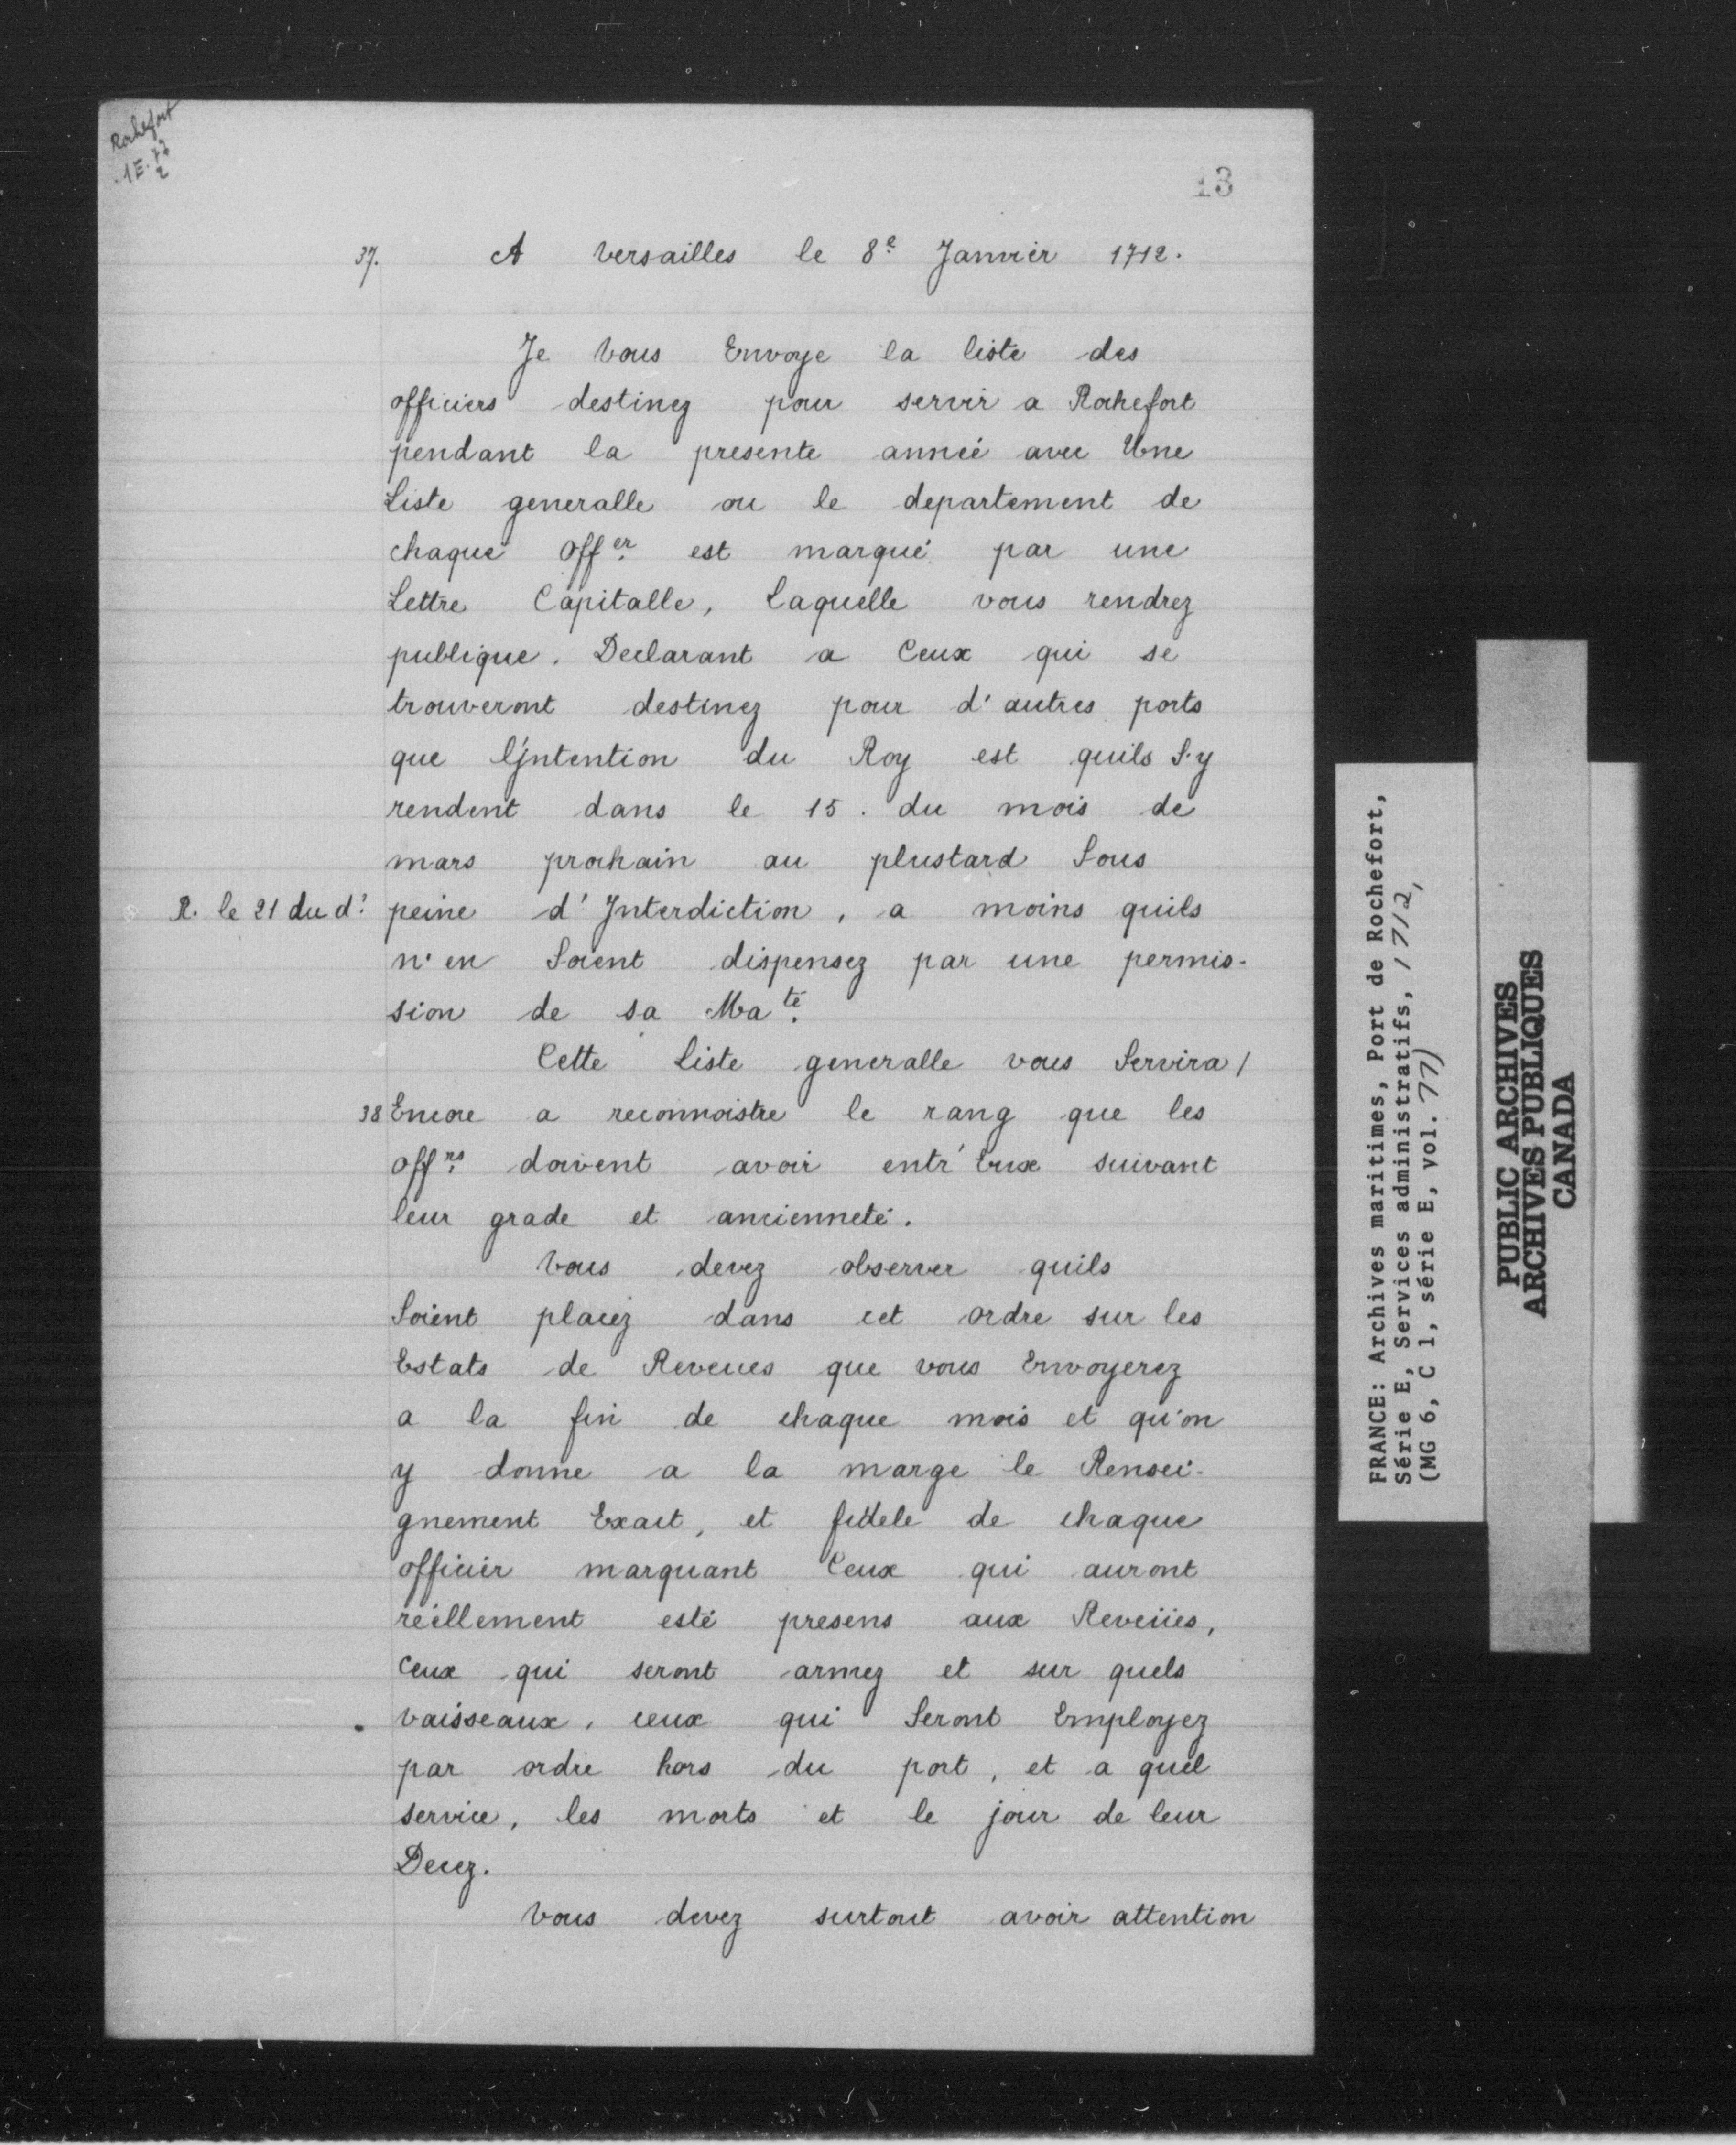 Rochefort
1E. 77
2
13
37. A Versailles le 8e Janvier 1712.
Je Vous Envoye la liste des
officiers destinez pour servir a Rochefort
pendant la presente année avec Une
Liste generalle ou le departement de
chaque offer est marqué par une
Lettre Capitalle, Laquelle vous rendrez
publique. Declarant a Ceux qui se
trouveront destinez pour d'autres ports
que L'jntention du Roy est quils S'y
rendent dans le 15. du mois de
mars prochain au plustard Sous
R. le 21 du d? peine d'Interdiction, a moins quils
n'en Soient dispensez par une permis-
sion de sa Maté.
Cette Liste generalle vous Servira /
38 Encore a reconnoistre le rang que les
offrs doivent avoir entr'Eux suivant
leur grade et ancienneté.
Vous devez observer quils
Soient placez dans cet ordre sur les
Estats de Reveues que vous Envoyerez
a la fin de chaque mois et qu'on
y donne a la marge le Rensei-
gnement Exact, et fidele de chaque
officier marquant Ceux qui auront
réellement esté presens aux Reveües,
Ceux qui seront armez et sur quels
vaisseaux, ceux qui Seront Employez
par ordre hors du port, et a quel
service, les morts et le jour de leur
Decez.
Vous devez surtout avoir attention
FRANCE: Archives maritimes, Port de Rochefort,
Série E, Services administratifs, 1712,
(MG 6, C 1, série E, vol. 77)
PUBLIC ARCHIVES
ARCHIVES PUBLIQUES
CANADA